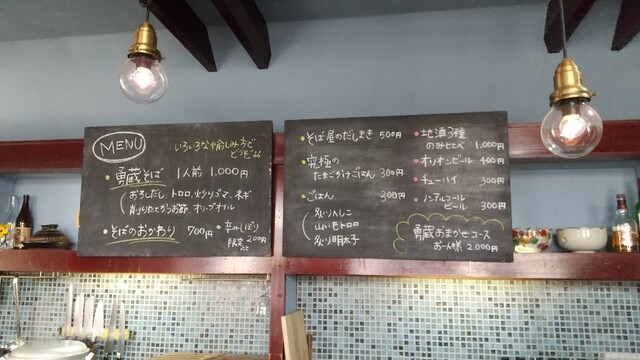 MENU
いろいろな愉しみ方で
どうぞ
・勇蔵そば 1人前 1,000円
(おろしだし、トロロ、炒りゴマ、ネギ
削りたてかつお節、オリーブオイル
・そばのおかわり 700円
・辛みしぼり
限定 200円
・そば屋のだしまき 500円
・究極の
たまごかけごはん 300円
・ごはん 300円
(炙りへしこ
山いもトロロ
炙り明太子
・地酒3種
のみ比べ 1,000円
・オリオンビール 400円
・チューハイ 300円
・ノンアルコール
ビール 300円
勇蔵おまかせコース
お一人様 2,000円